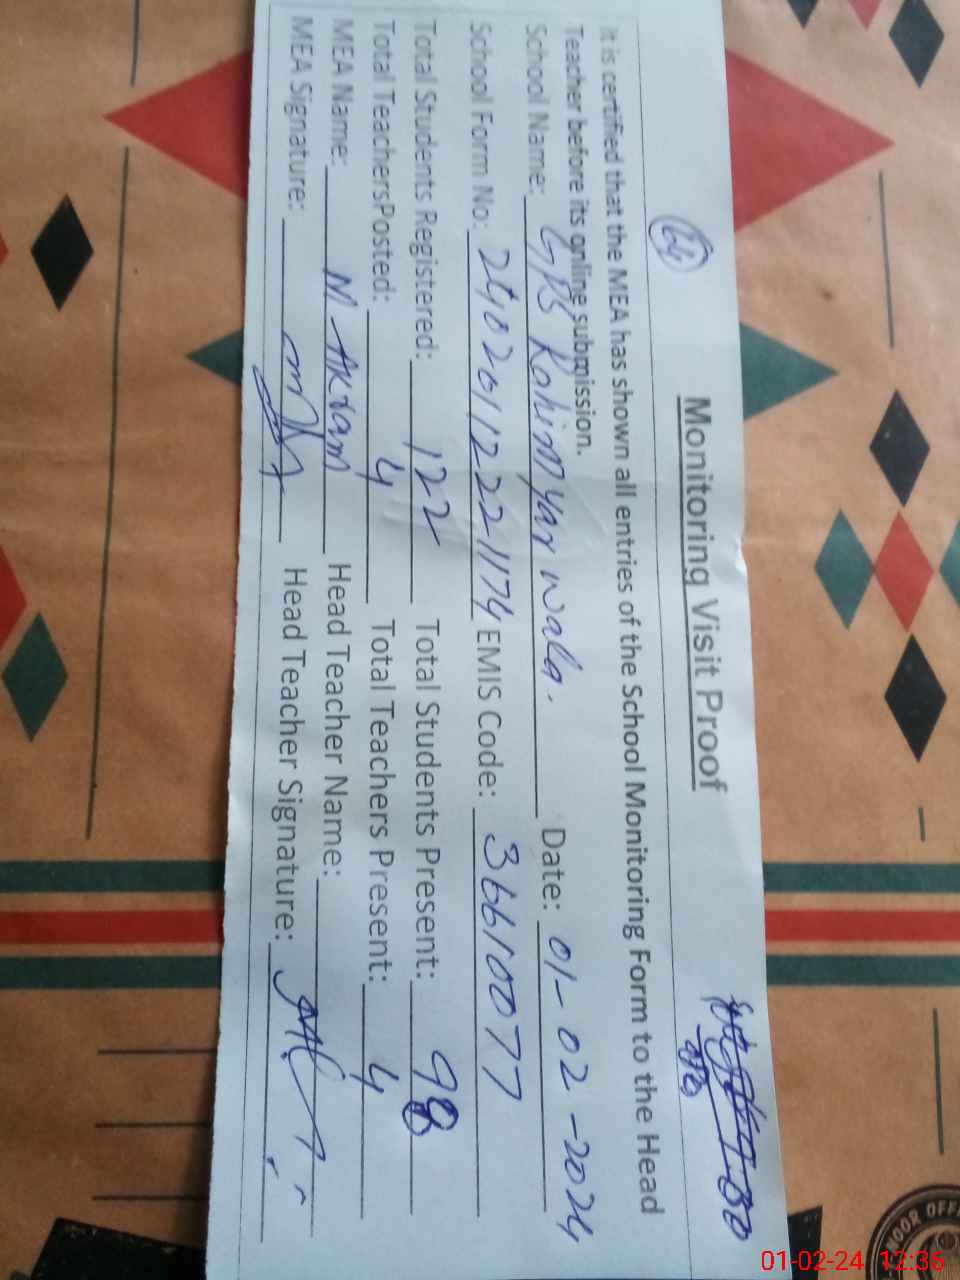 Monitoring Visit Proof
It is certified that the MEA has shown all entries of the School Monitoring Form to the Head
Teacher before its online submission.
School Name: GPS Rahim Yar wala. Date: 01-02-2024
School Form No: 2402011222-1174 EMIS Code: 36610077
Total Students Registered: 122 Total Students Present: 98
Total TeachersPosted: 4 Total Teachers Present: 4
MEA Name: M Akram Head Teacher Name:
MEA Signature: Head Teacher Signature:
NOOR OFF
01-02-24 12:36